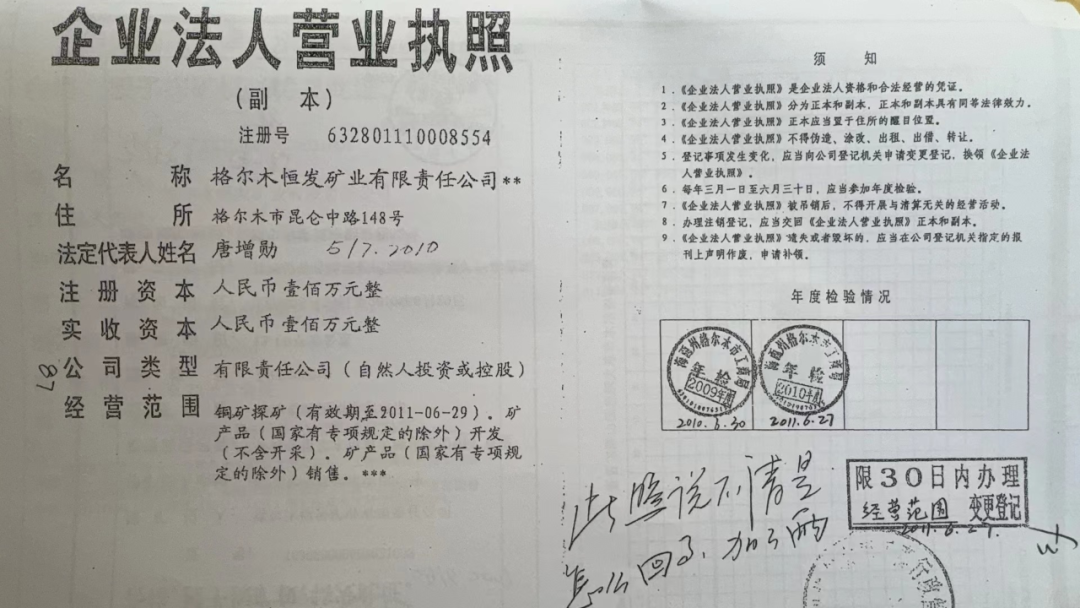 企业法人营业执照
（副 本）
注册号 632801110008554
名 称 格尔木恒发矿业有限责任公司**
住 所 格尔木市昆仑中路148号
法定代表人姓名 唐增勋 517.2010
注 册 资 本 人民币壹佰万元整
实 收 资 本 人民币壹佰万元整
87
公 司 类 型 有限责任公司（自然人投资或控股）
经 营 范 围 铜矿探矿（有效期至2011-06-29）．矿
产品（国家有专项规定的除外）开发
（不含开采）．矿产品（国家有专项规
定的除外）销售．***
须 知
1．《企业法人营业执照》是企业法人资格和合法经营的凭证。
2．《企业法人营业执照》分为正本和副本，正本和副本具有同等法律效力。
3．《企业法人营业执照》正本应当置于住所的醒目位置。
4．《企业法人营业执照》不得伪造、涂改、出租、出借、转让。
5．登记事项发生变化，应当向公司登记机关申请变更登记，换领《企业法
人营业执照》。
6．每年三月一日至六月三十日，应当参加年度检验。
7．《企业法人营业执照》被吊销后，不得开展与清算无关的经营活动。
8．办理注销登记，应当交回《企业法人营业执照》正本和副本。
9．《企业法人营业执照》遗失或者毁坏的，应当在公司登记机关指定的报
刊上声明作废，申请补领。
年度检验情况
海西州格尔木市工商局
年检
2009年度
2010.6.30
海西州格尔木市工商局
年检
2010年度
2011.6.27
限30日内办理
经营范围 变更登记
2011.6.27.
此照说不清是
怎么回事、加
行政